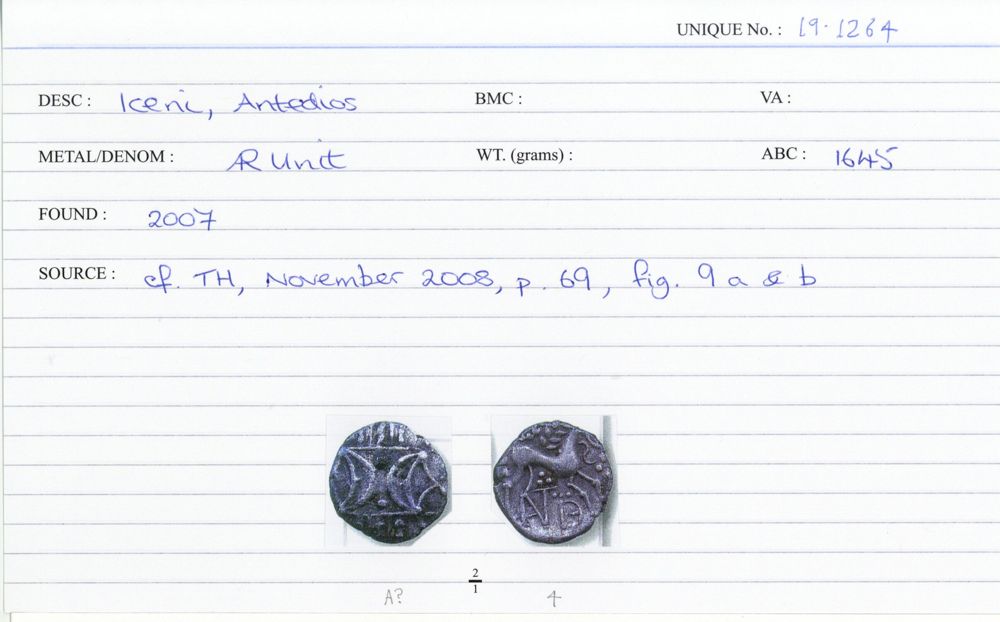 UNIQUE No. : 19.1264
DESC : Iceni, Antedios BMC : VA :
METAL/DENOM : AR Unit WT. (grams) : ABC : 1645
FOUND : 2007
SOURCE : cf. TH, November 2008, p. 69, fig. 9 a & b
2
1
A? 4